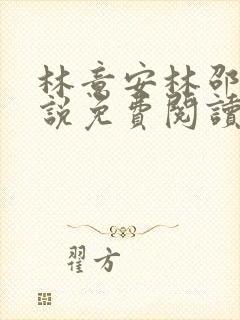 林意安林邵
說免費閱讀
翟方